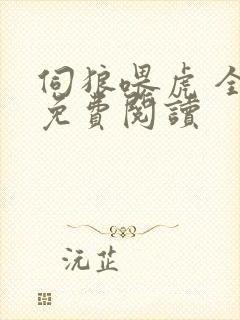 伺狼喂虎 全
免費閱讀
沅芷